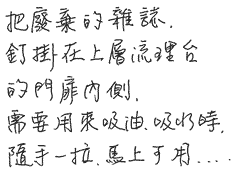 把廢棄的雜誌.
釘掛在上層流理台
的門扉內側.
需要用來吸油、吸水時,
隨手一拉,馬上可用....